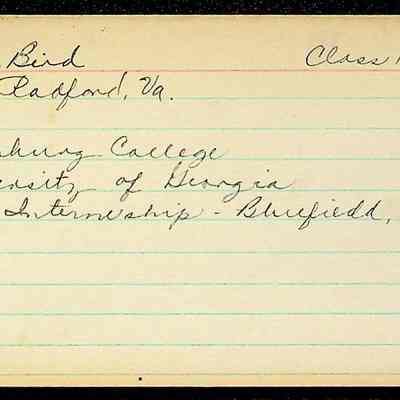 Bird Class
Radford, Va.
burg College
ersity of Georgia
Internship - Bluefield,